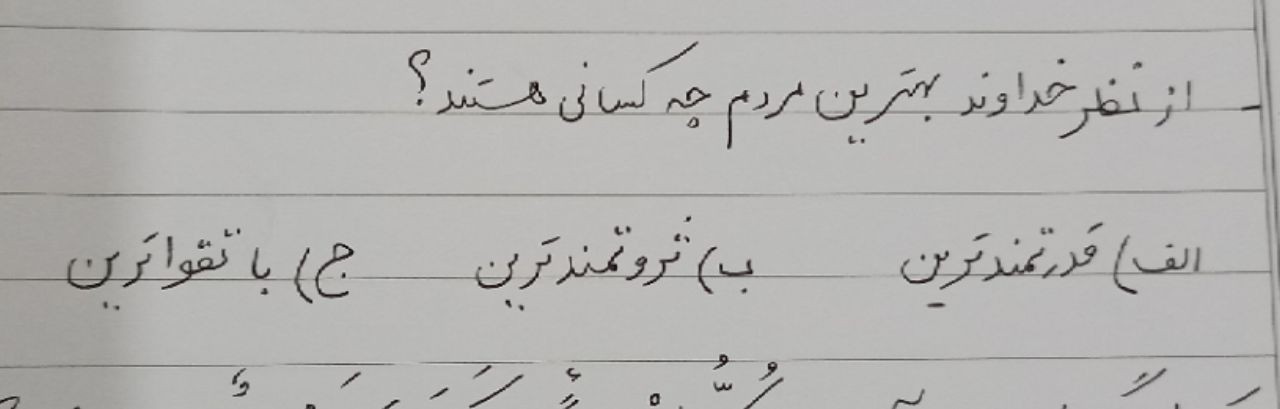 - از نظر خداوند بهترین مردم چه کسانی هستند؟
الف) قدرتمندترین ب) ثروتمندترین ج) با تقواترین